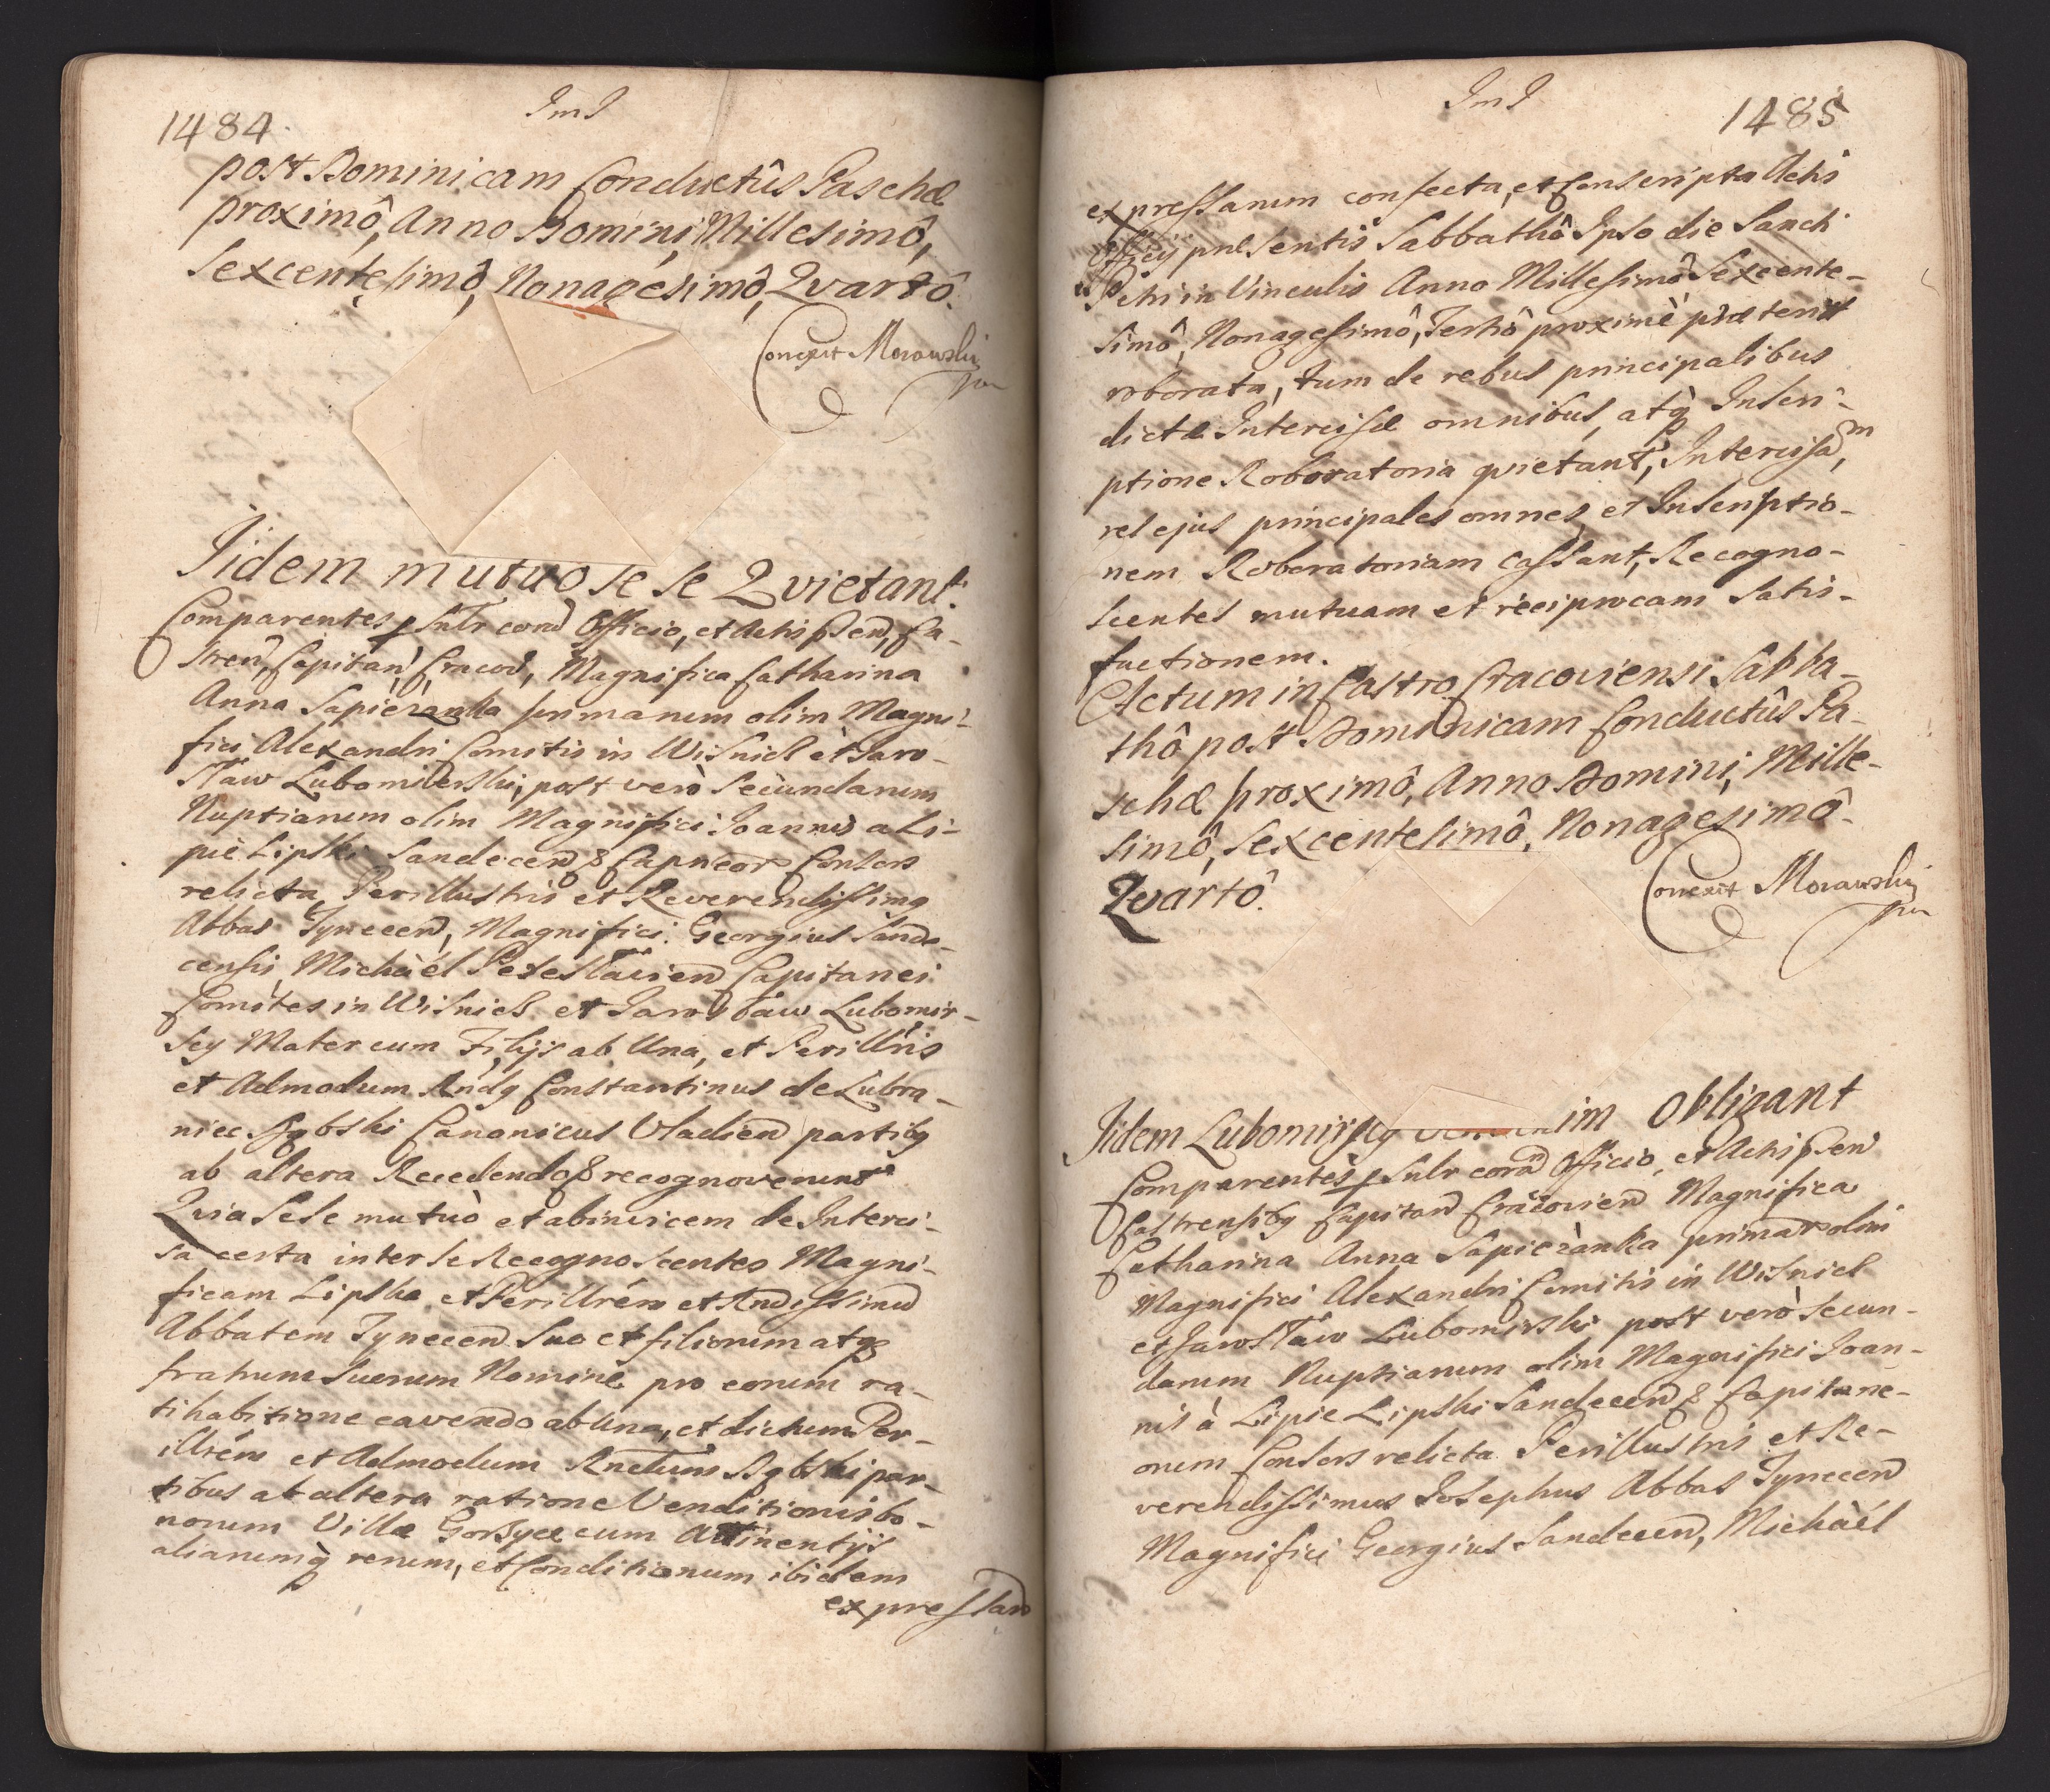 1484
ImI
post Dominicam Conductûs Paschæ
proximô, Anno Domini, Millesimô,
Sexcentesimô, Nonagesimô, Qvartô.
Correxit Morawski
Iidem mutuo se se Qvietant.
Comparentes psnlr corā Officio, et Actis psen, Ca-
stren, Capitan, Cracov, Magnifica Catharina
Anna Sapieżanka primarum olim Magni-
fici Alexandri Comitis in Wisnicz et Jaro-
sław Lubomierski, post verò secundarum
Nuptiarum olim Magnifici Joannis a Li-
pie Lipski Sandecen & Capneor Consors
relicta, Perillustris et Reverendissimg
Abbas Tynecen, Magnifici Georgius Sande-
censis Michaël Perestavien Capitanei
Comites in Wisnicz et Jarosław Lubomir-
scy Mater cum Filijs ab Una, et Perillris
et Admodum Rndg Constantinus de Lubra-
niec Dąbski Canonicus Vladien partibg
ab altera Recedendo & recognoverunt
Qvia sese mutuò et ab invicem de Interci-
sa certa inter se Recognoscentes Magni-
ficam Lipska, et Perillrem et Rndissimū
Abbatem Tynecen suo et filiorum atq
fratrum suorum Nomine pro eorum ra-
tihabitione cavendo ab una, et dictum Per-
illrém et Admodum Rndum Dąbski par-
tibus ab altera ratione Venditionis bo-
norum Villæ Gorzyce cum Attinentijs
aliarumq rerum, et Conditionum ibidem
expressarū
ImI
1485
expressarum confecta, et Conscripta Actis
Officij pnlsentis Sabbathô Ipso die Sancti
Petri in Vinculis Anno Millesimô Sexcente-
simô, Nonagesimô, Tertiô proximè præterit
roborata, tum de rebus principalibus
dictæ Intercisæ omnibus, atq Inscri-
ptione Roboratoria qvietant, Intercisam,
rel ejus principales omnes, et Inscriptio-
nem Roboratoriam cassant, Recogno-
scentes mutuam et reciprocam Satis-
factionem.
Actum in Castro Cracoviensi Sabba-
thô post Dominicam Conductûs Pa-
schæ proximô, Anno Domini, Mille-
simô, Sexcentesimô, Nonagesimô
Qvartô.
Correxit Morawski
Iidem Lubomirscy im Obligant
Comparentes psnlr coram Officio, et Actis psen
Castrensibg Capitan Cracovien Magnifica
Catharina Anna Sapieżanka primar olim
Magnifici Alexandri Comitis in Wisnicz
et Jarosław Lubomirski post verò secun-
darum Nuptiarum olim Magnifici Joan-
nis à Lipie Lipski Sandecen & Capitane-
orum Consors relicta Perillustris et Re-
verendissimus Josephus Abbas Tynecen
Magnifici Georgius Sandecen, Michaël